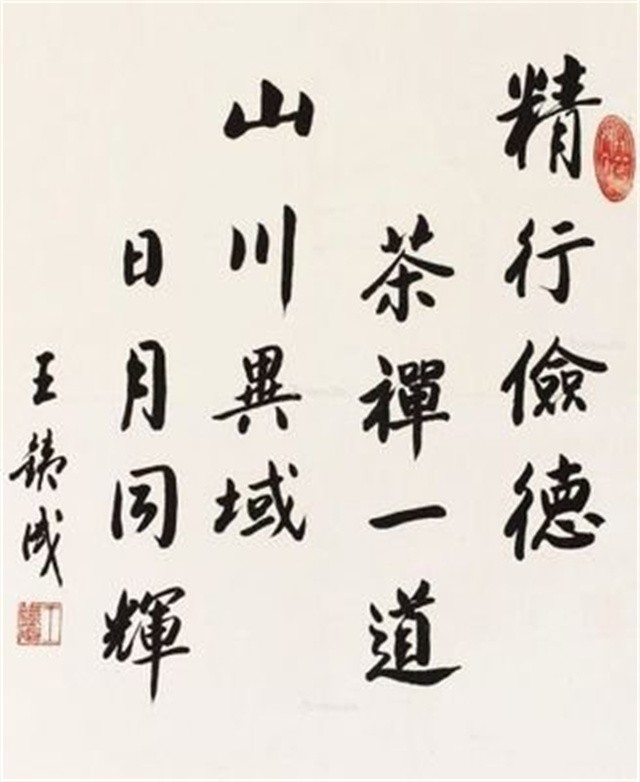 精行儉德
茶禪一道
山川異域
日月同輝
王鐵成